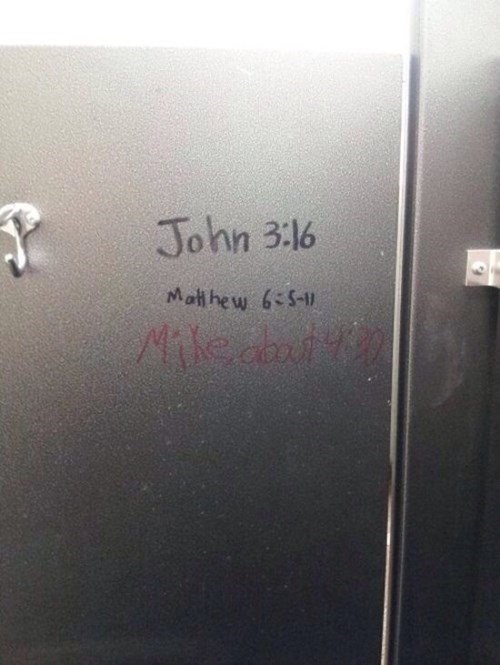 John 3:16
Matthew 6:5-11
Mike about 4:30